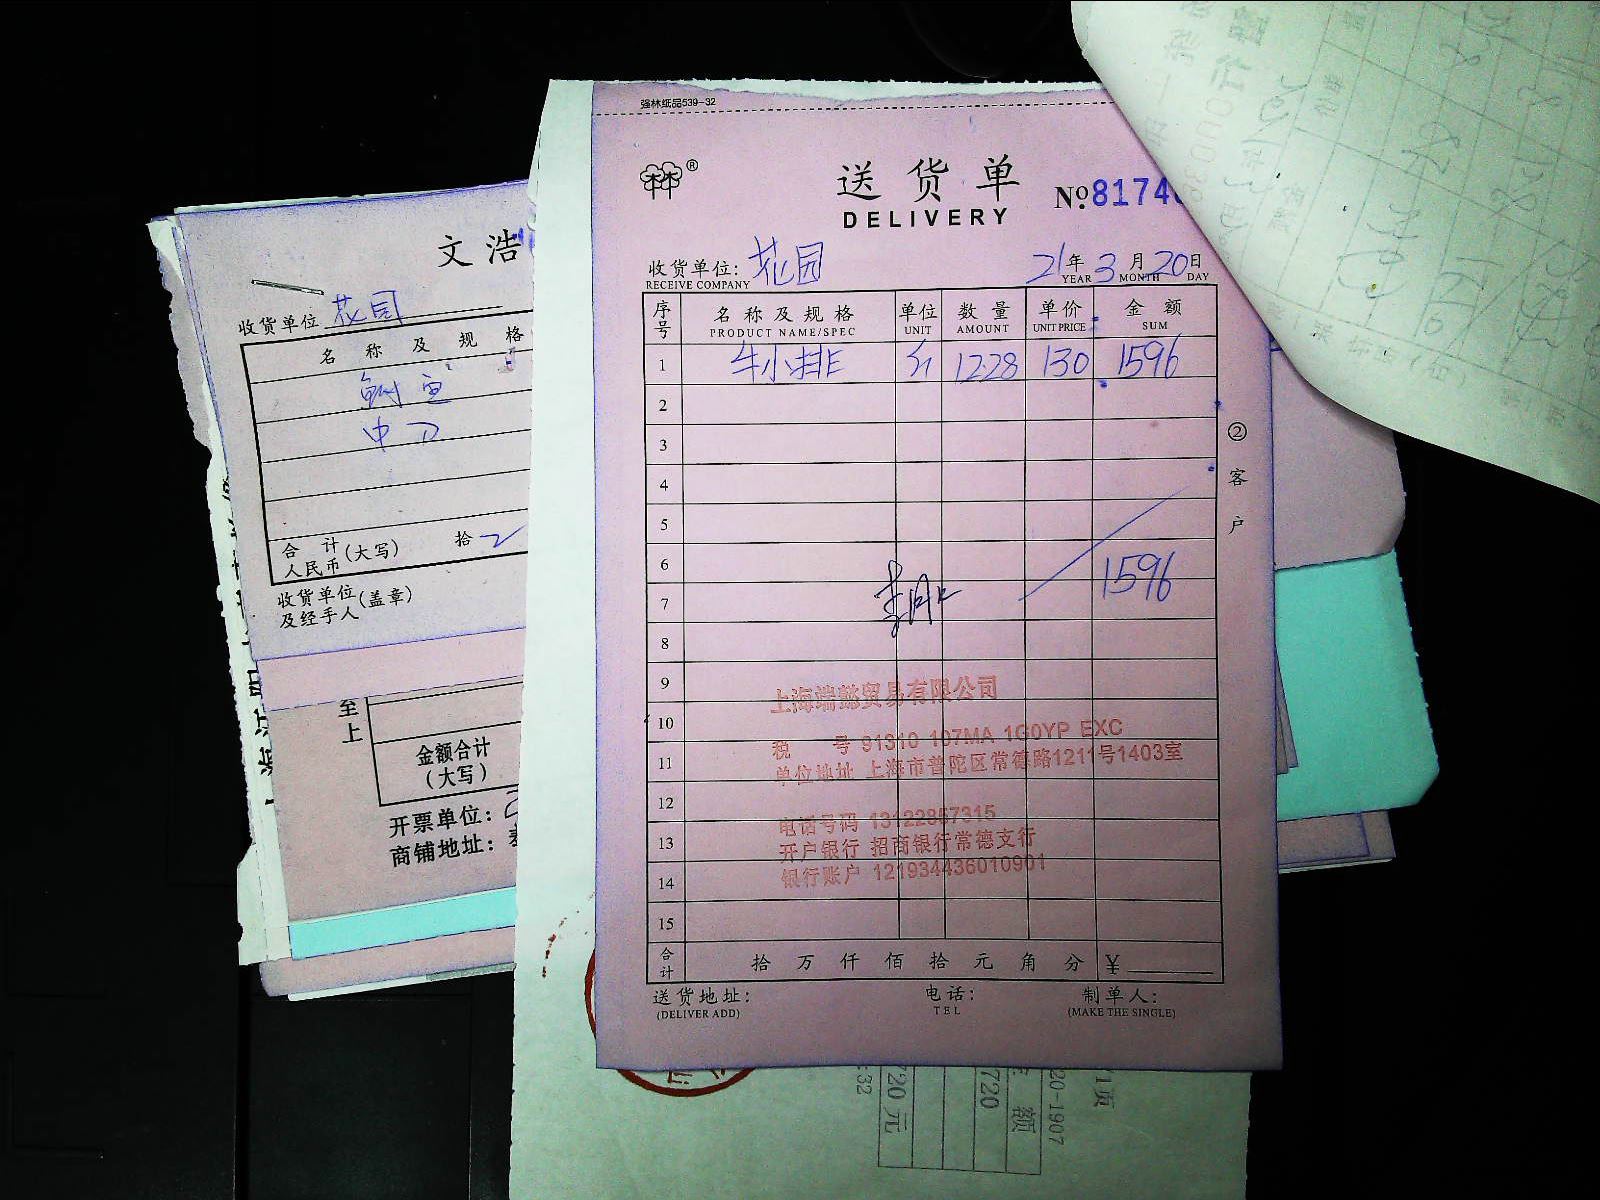 强林纸品539-32
送货单
DELIVERY
No.8174
收货单位: 花园
RECEIVE COMPANY
21年3月20日
YEAR MONTH DAY
序号 名称及规格 单位 数量 单价 金额
PRODUCT NAME/SPEC UNIT AMOUNT UNIT PRICE SUM
1 牛小排 斤 12.28 130 1596
2
3
4
5
6
1596
7
8
9
上海端懿贸易有限公司
10
税 号 91310 107MA 1G0YP EXC
11
单位地址 上海市普陀区常德路1211号1403室
12
电话号码 13122857315
13
开户银行 招商银行常德支行
14
银行账户 121934436010901
15
合计 拾 万 仟 佰 拾 元 角 分 ¥
送货地址: 电话: 制单人:
(DELIVER ADD) TEL (MAKE THE SINGLE)
② 客户
文浩
收货单位 花园
名称及规格
鲷鱼
中刀
合计
人民币 (大写) 拾
收货单位
及经手人 (盖章)
至上
金额合计
(大写)
开票单位:
商铺地址:
720元
720
额
20-1907
1页
:32